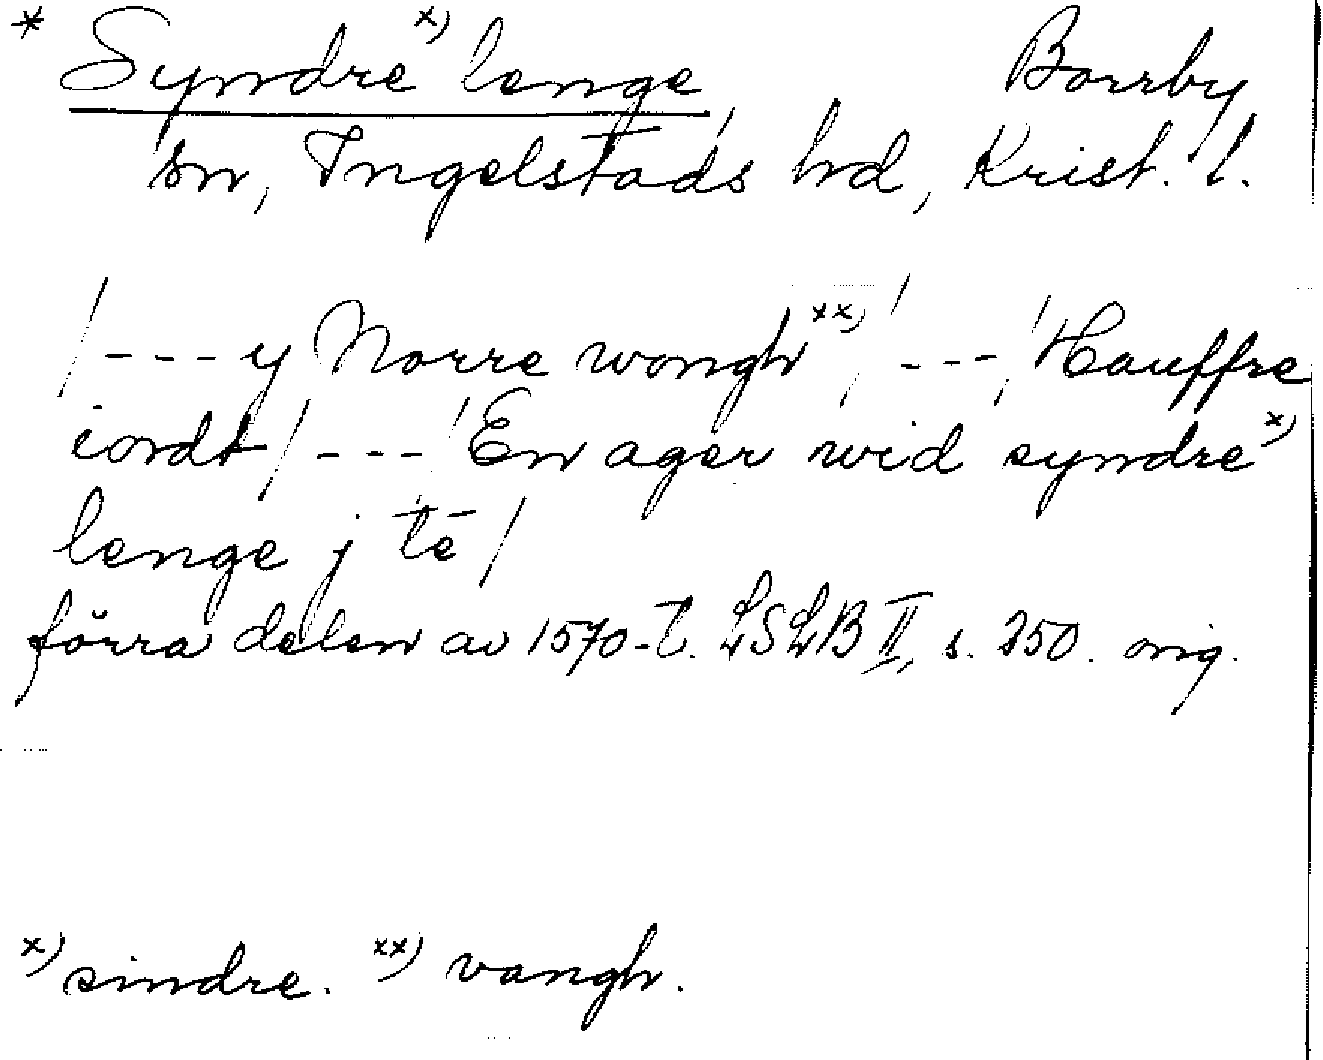 * Syndre x) lenge Borrby
sn, Ingelstads hrd, Krist. l.
/--- y Norre wongh xx) /---/ Hauffre
iordt /---/ En ager wid syndre x)
lenge j tē /
förra delen av 1570-t. LSLB II, s. 250. orig.
x) sindre. xx) vangh.